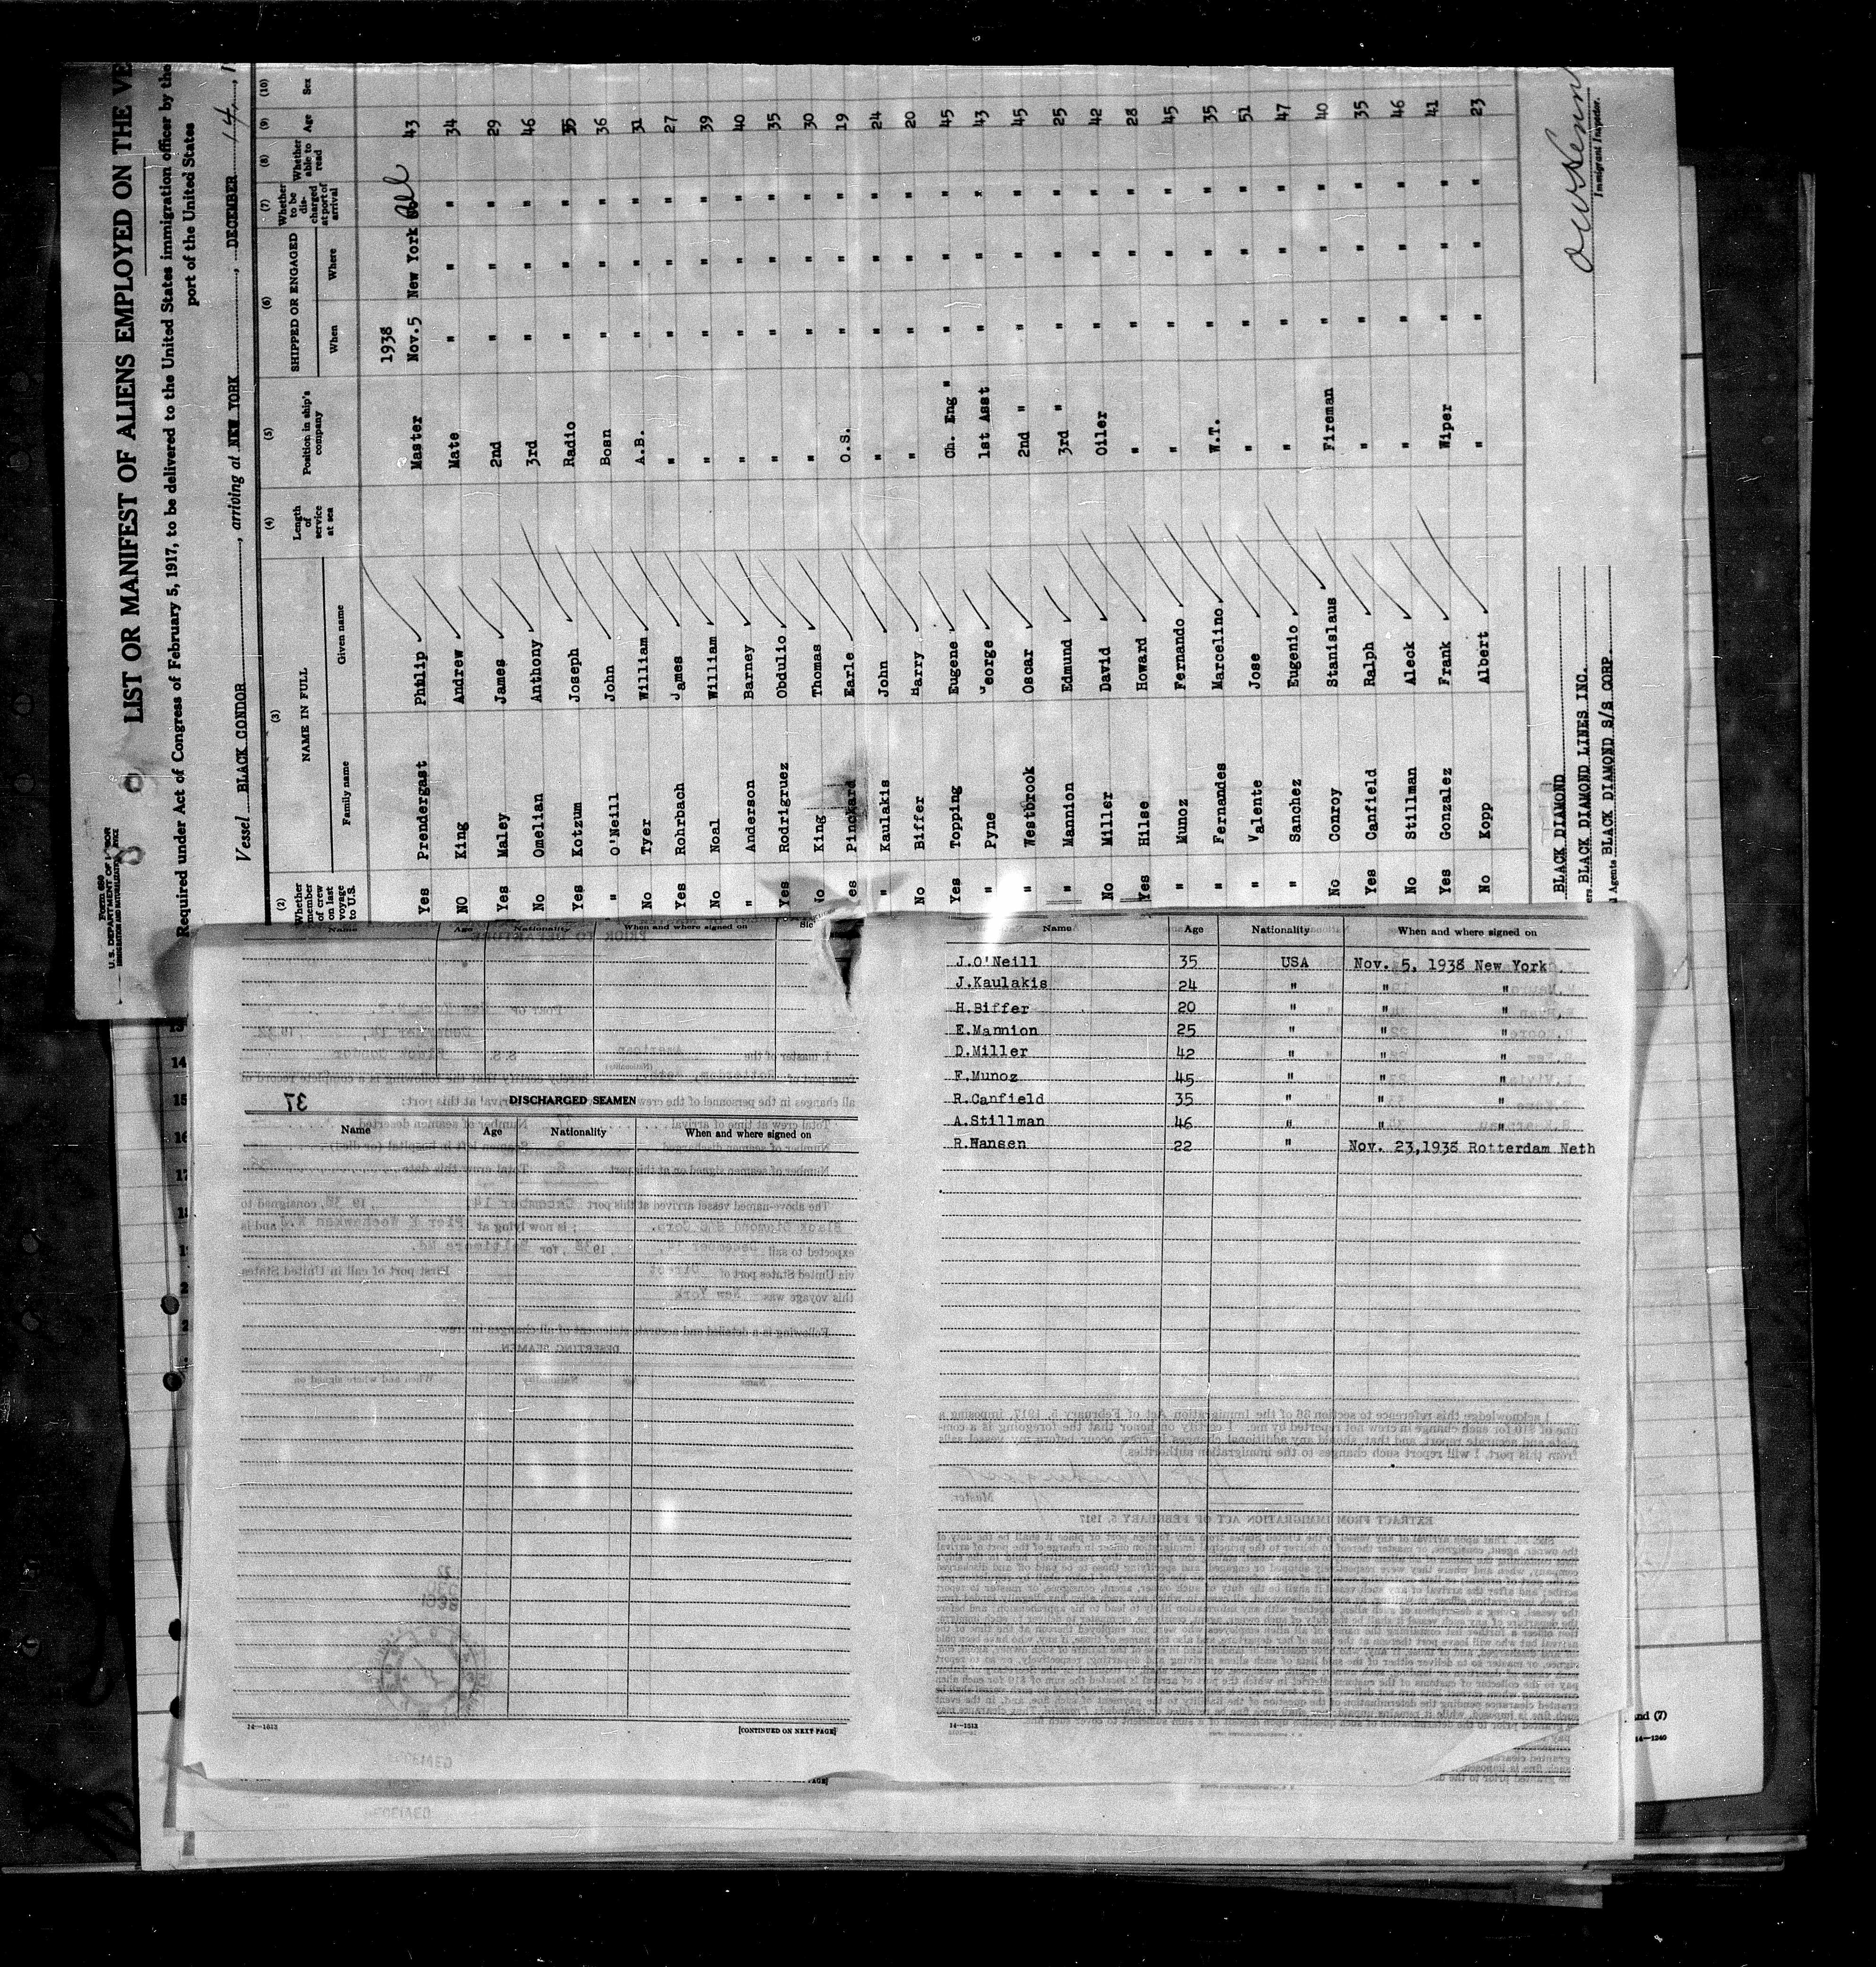 Form 680
U. S. DEPARTMENT OF LABOR
IMMIGRATION AND NATURALIZATION SERVICE
LIST OR MANIFEST OF ALIENS EMPLOYED ON THE VE
Required under Act of Congress of February 5, 1917, to be delivered to the United States immigration officer by the
port of the United States
Vessel BLACK CONDOR, arriving at NEW YORK, DECEMBER 14, 1
(2) (3) (4) (5) (6) (7) (8) (9) (10)
Whether member of crew on last voyage to U.S. NAME IN FULL Family name Given name Length of service at sea Position in ship's company SHIPPED OR ENGAGED When Where Whether to be discharged at port of arrival Whether able to read Age Sex
1938
Yes Prendergast Philip Master Nov.5 New York 43
NO King Andrew Mate " " " 34
Yes Maley James 2nd " " " 29
No Omelian Anthony 3rd " " " 46
Yes Kotzum Joseph Radio " " " 35
" O'Neill John Bosn " " " 36
No Tyer William A.B. " " " 31
Yes Rohrbach James " " " " 27
No Noal William " " " " 39
" Anderson Barney " " " " 40
Yes Rodrigruez Obdulio " " " " 35
No King Thomas " " " " 30
Yes Pinckard Earle O.S. " " " 19
" Kaulakis John " " " " 24
No Biffer Harry " " " " 20
Yes Topping Eugene Ch. Eng " " " " 45
" Pyne George 1st Asst " " " 43
" Westbrook Oscar 2nd " " " " 45
" Mannion Edmund 3rd " " " " 25
No Miller David Oiler " " " 42
Yes Hilse Howard " " " " 28
" Munoz Fernando " " " " 45
" Fernandes Marcelino W.T. " " " 35
" Valente Jose " " " " 51
" Sanchez Eugenio " " " " 47
No Conroy Stanislaus Fireman " " " 40
Yes Canfield Ralph " " " " 35
No Stillman Aleck " " " " 46
Yes Gonzalez Frank Wiper " " " 41
No Kopp Albert " " " " 23
BLACK DIAMOND
ers BLACK DIAMOND LINES INC.
Agents BLACK DIAMOND S/S CORP.
Immigrant Inspector.
Name Age Nationality When and where signed on
37
DISCHARGED SEAMEN
Name Age Nationality When and where signed on
14—1513
[CONTINUED ON NEXT PAGE]
Name Age Nationality When and where signed on
J.O'Neill 35 USA Nov. 5, 1938 New York
J.Kaulakis 24 " " "
H.Biffer 20 " " "
E.Mannion 25 " " "
D.Miller 42 " " "
F.Munoz 45 " " "
R.Canfield 35 " " "
A.Stillman 46 " " "
R.Hansen 22 " Nov. 23,1938 Rotterdam Neth
14—1513
and (7)
14—1240
14
15
16
17